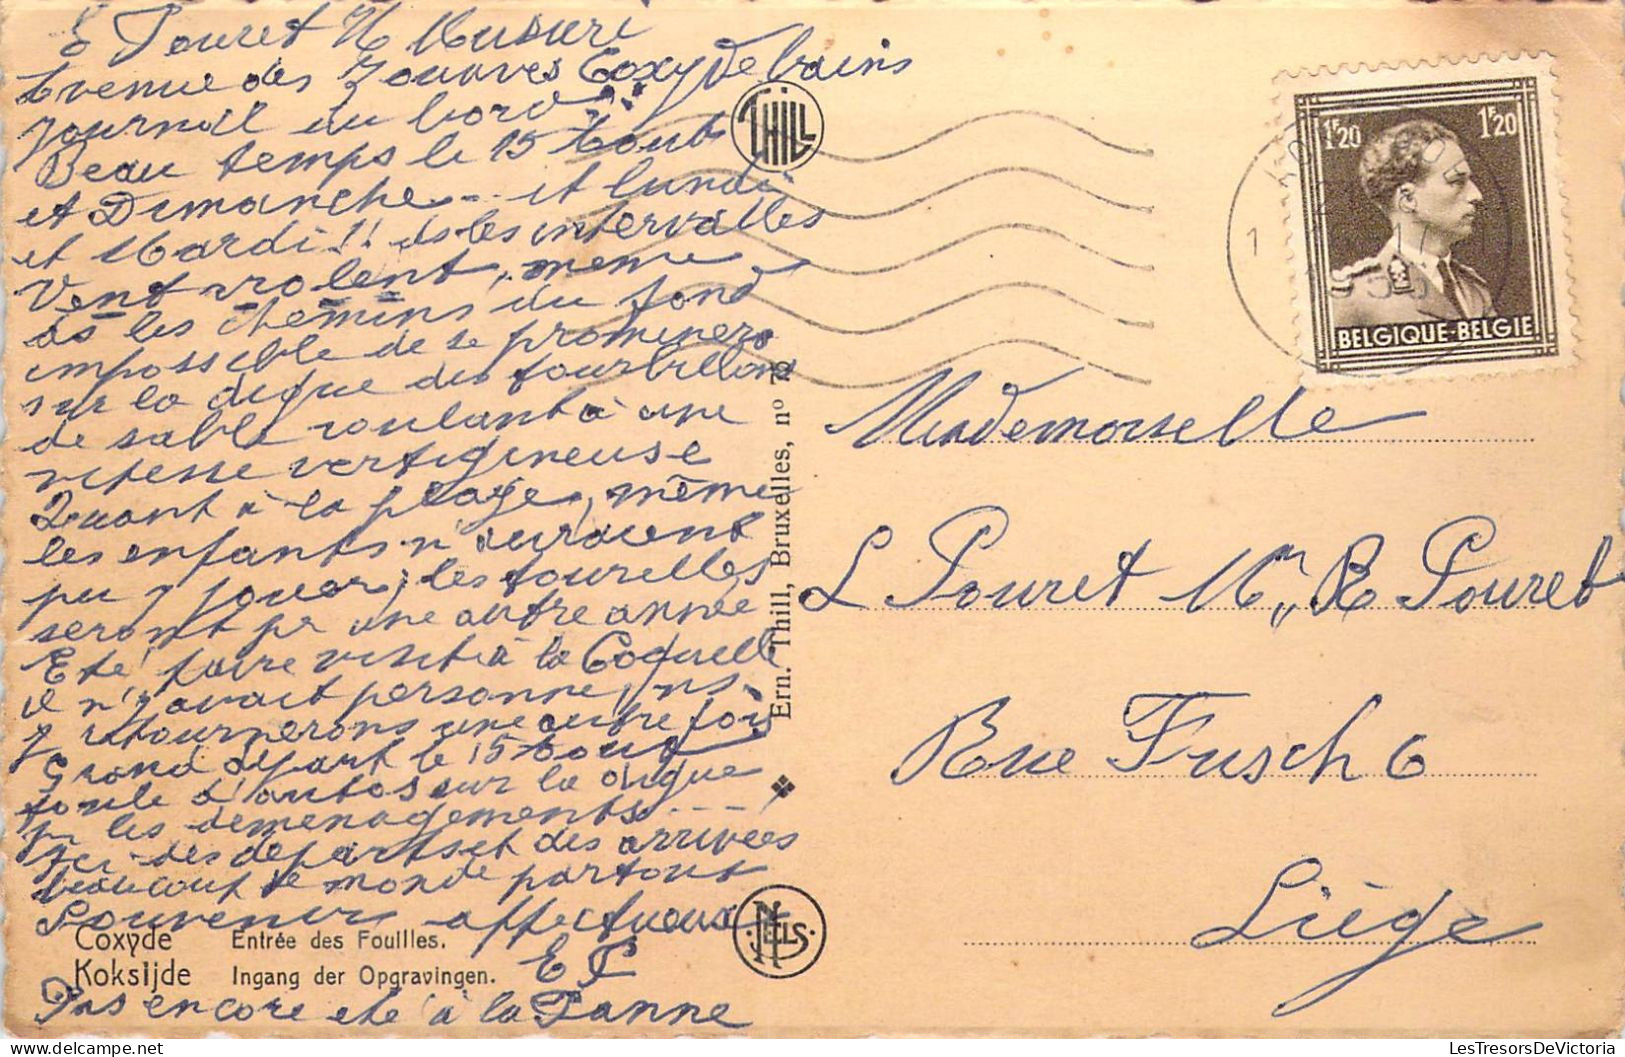 E Pouret
Avenue des Zouaves Coxyde bains
Journal du bord
Beau temps le 15 Août
et Dimanche -- et lundi
et Mardi !! ds les intervalles
Vent violent, meme
ds les chemins du fond
impossible de se promener
sur la digue des tourbillons
de sable roulant à une
vitesse vertigineuse
Quant à la plage, même
les enfants n'auraient
pu y jouer, les
seront pr une autre année
Eté faire visite à la Coquelle
il n'y avait personne, ns
y retournerons une autre fois
Grand départ le 15 Aout
foule d'autos sur la digue
pr les demenagements ----
Ici des departs et des arrivées
beaucoup de monde partout
Souvenirs affectueux
E P
Pas encore eté à la Panne
Coxyde Entrée des Fouilles.
Koksijde Ingang der Opgravingen.
THILL
Ern. Thill, Bruxelles, no 72
NELS
1F20 1F20
BELGIQUE-BELGIE
1
Mademoiselle
L Pouret Mr, E Pouret
Rue Fusch 6
Liège
LesTresorsDeVictoria
https://www.delcampe.net